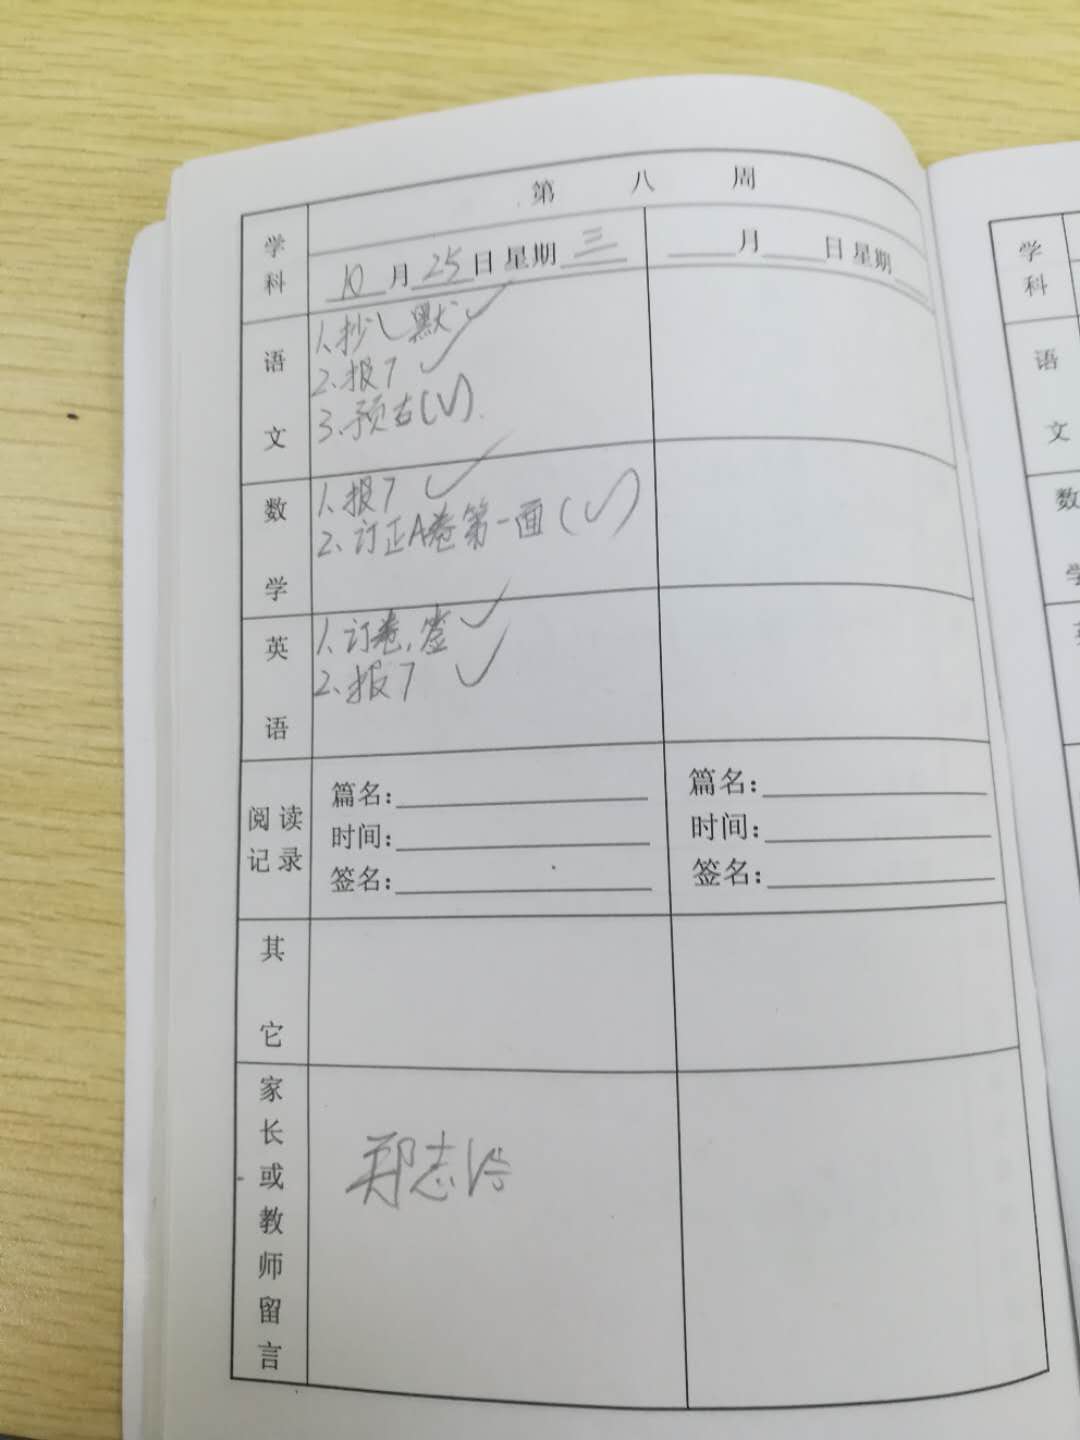 第 八 周
学科
10月25日星期三
___月___日星期__
语文
1.抄、默✓
2.报7✓
3.预古(✓)
数学
1.报7✓
2.订正A卷第一面(✓)
英语
1.订卷,签✓
2.报7✓
阅读
记录
篇名:
时间:
签名:
篇名:
时间:
签名:
其它
家长或教师留言
郑志
学科
语文
数学